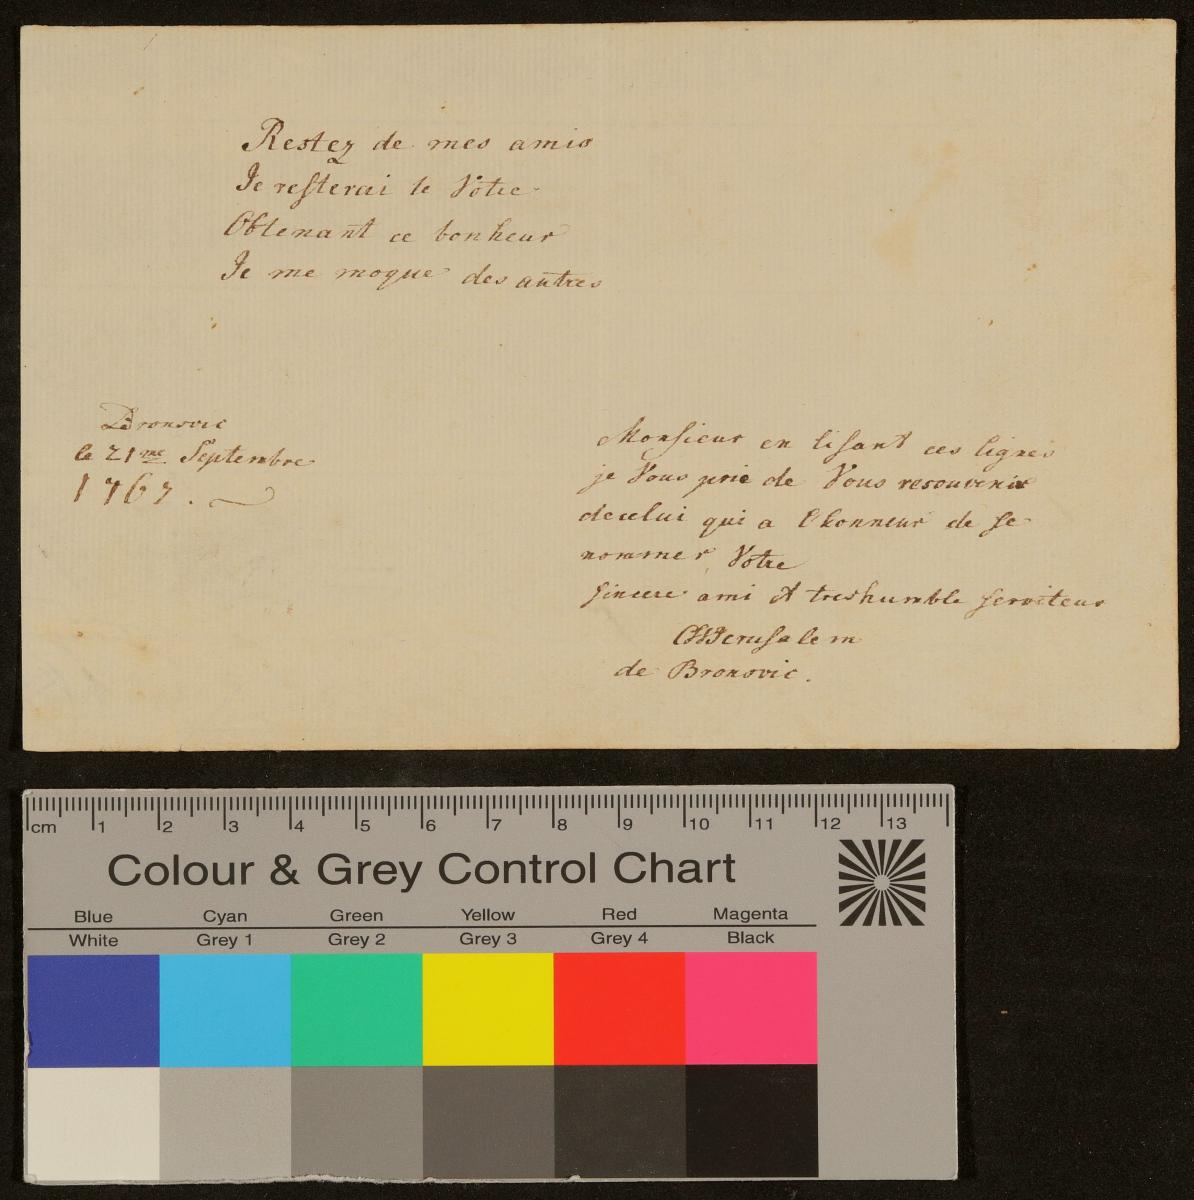 Restez de mes amis
Je resterai le Votre
Obtenant ce bonheur
Je me moque des autres
Bronsvic
le 21me Septembre
1767.
Monsieur en lisant ces lignes
je Vous prie de Vous resouvenir
de celui qui a l'honneur de se
nommer Votre
sincere ami et treshumble serviteur
CWJerusalem
de Bronsvic.
cm 1 2 3 4 5 6 7 8 9 10 11 12 13
Colour & Grey Control Chart
Blue Cyan Green Yellow Red Magenta
White Grey 1 Grey 2 Grey 3 Grey 4 Black